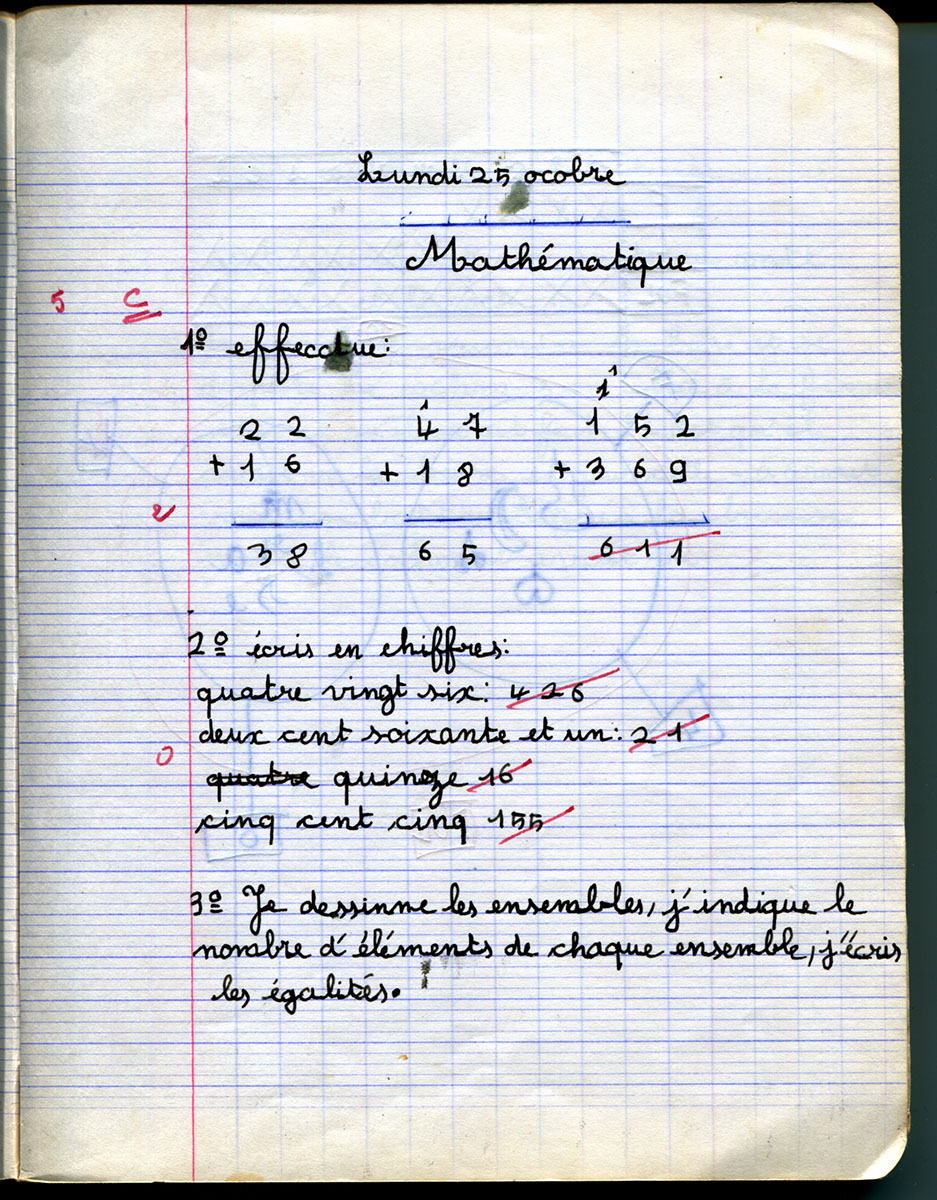 Lundi 25 ocobre
Mathématique
5 C
1º effectue:
1 1 1
2 2 4 7 1 5 2
+ 1 6 + 1 8 + 3 6 9
2
3 8 6 5 6 1 1
2º écris en chiffres:
quatre vingt six: 4 26
deux cent soixante et un: 2 1
0
quatre quinze 16
cinq cent cinq 155
3º Je dessinne les ensembles, j'indique le
nombre d'éléments de chaque ensemble, j'écris
les égalités.